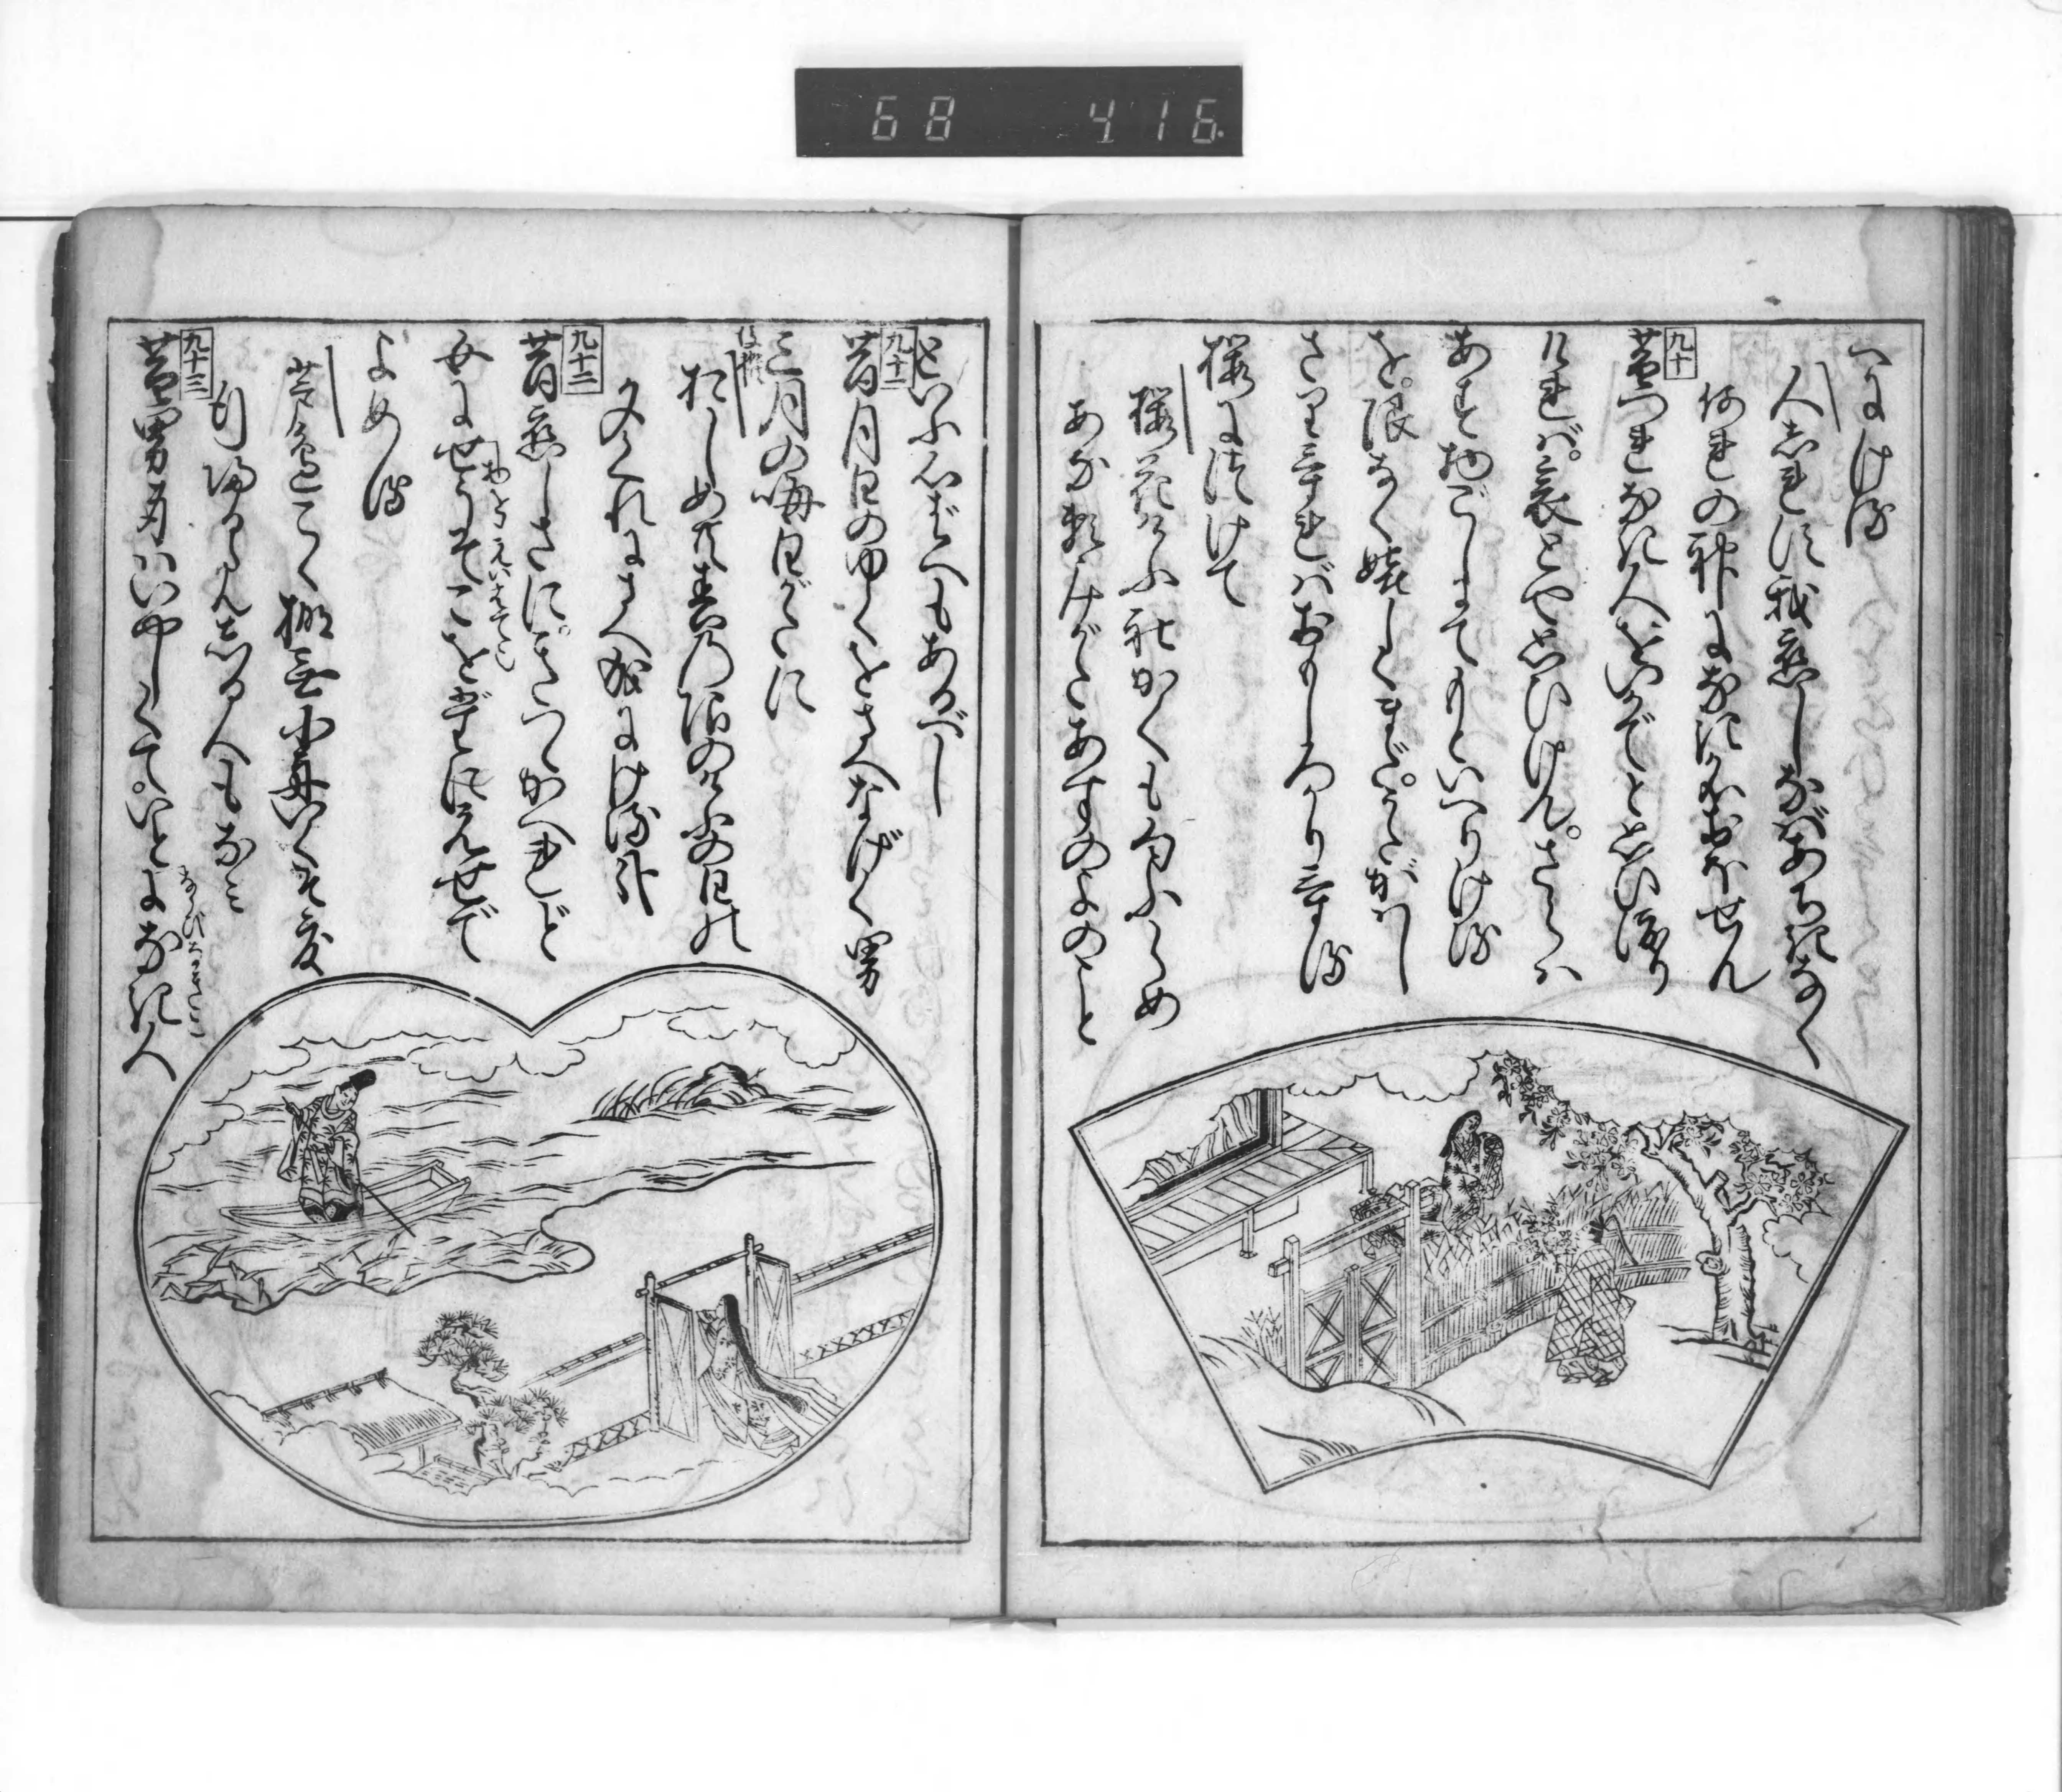 68 416.
へにける
人しれず我恋しなばあぢきなく
何れの神になき名おほせん
九十
昔つれなき人をいかでと思ひ渡り
ければ。哀とや思ひけん。さらバ
あす物ごしにてもといへりける
を。限なく嬉しくまた。うたがハし
かりけれバおもしろかりける
桜につけて
桜花けふ社かくも匂ふらめ
あな頼みがたあすのよのこと
といふ心ばへもあるべし
九十一
昔月日のゆくをさへなげく男
三月の晦日がたに
後撰
おしめ共春の限のけふの日の
夕ぐれにさへ成にける哉
九十二
昔恋しさに。きつゝかへれど
女にせうそこをだにえせで
よめる
芦辺こぐ棚無小舟いくそ度
行帰るらんしる人もなみ
九十三
昔男身ハいやしくて。いとになき人
ならびなきこと